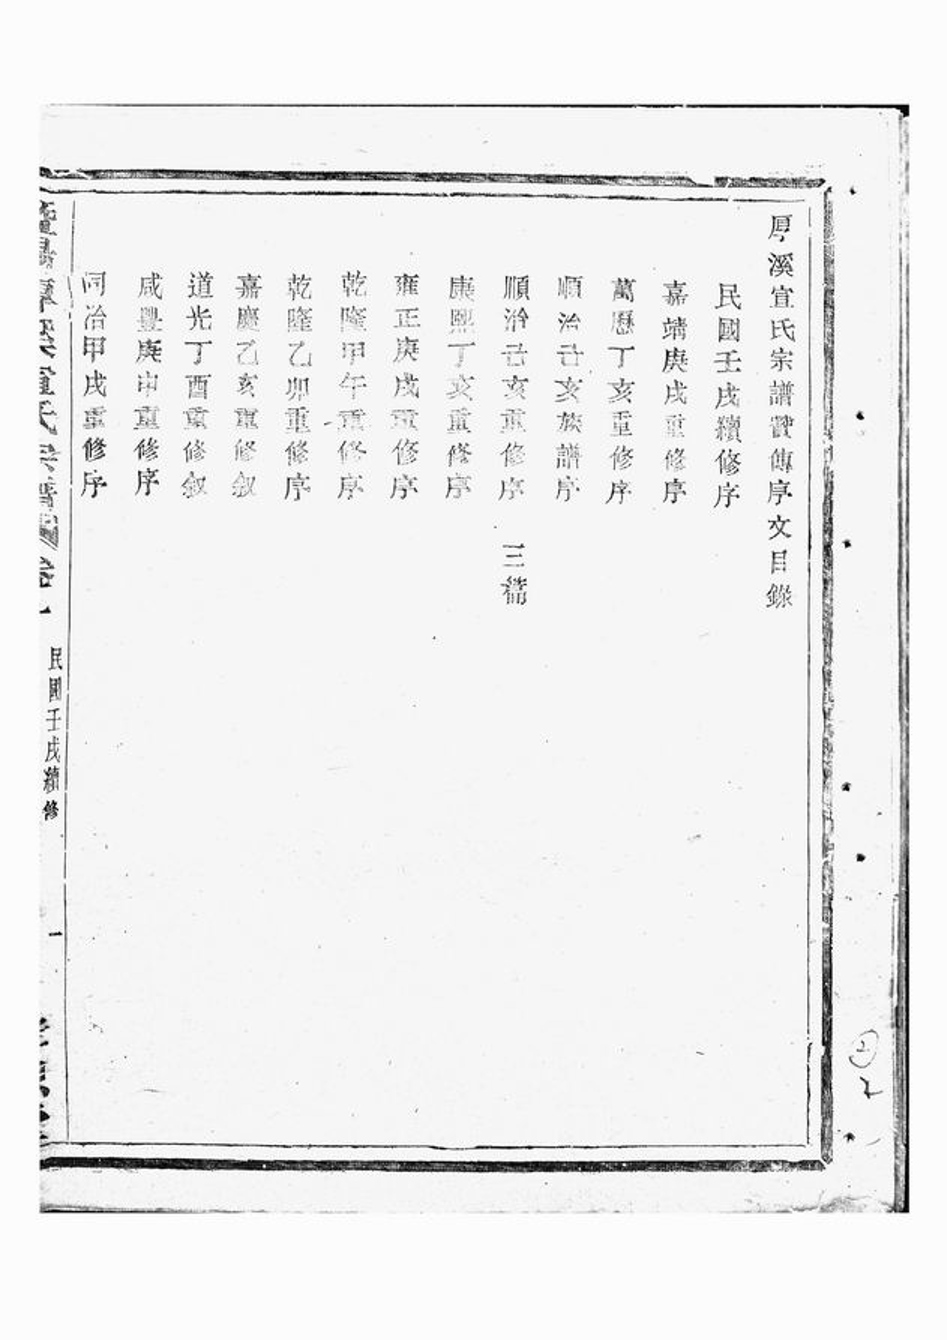 厚溪宣氏宗譜贊傳序文目錄
民國壬戌續修序
嘉靖庚戌重修序
萬曆丁亥重修序
順治己亥族譜序
順治己亥重修序 三篇
康熙丁亥重修序
雍正庚戌重修序
乾隆甲午重修序
乾隆乙卯重修序
嘉慶乙亥重修叙
道光丁酉重修叙
咸豐庚申重修序
同治甲戌重修序
宣氏宗譜 卷一 民國壬戌續修 一